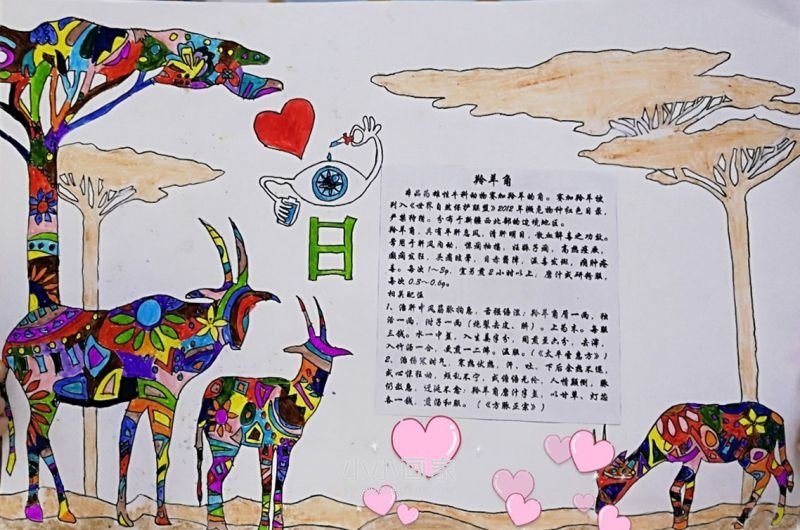 日
羚羊角
本品为雄性牛科动物赛加羚羊的角。赛加羚羊被
列入《世界自然保护联盟》2012年濒危物种红色目录，
严禁狩猎。分布于新疆西北部的边境地区。
羚羊角，具有平肝息风，清肝明目，散血解毒之功效。
常用于肝风内动，惊痫抽搐，妊娠子痫，高热痉厥，
癫痫发狂，头痛眩晕，目赤翳障，温毒发斑，痈肿疮
毒。每次1～3g，宜另煎2小时以上；磨汁或研粉服，
每次0.3～0.6g。
相关配伍
1、治肝中风筋脉拘急，舌强语涩：羚羊角屑一两，独
活一两，附子一两（炮裂去皮、脐）。上为末。每服
三钱。水一中盏，入生姜半分，同煎至六分，去滓，
入竹沥一分，更煎一二沸，温服。（《太平圣惠方》）
2、治伤寒时气，寒热伏热，汗、吐、下后余热不退，
或心惊狂动，烦乱不宁，或谵语无伦，人情颠倒，脉
仍数急，迁延不愈：羚羊角磨汁半盏，以甘草、灯芯
各一钱，煎汤和服。（《方脉正宗》）